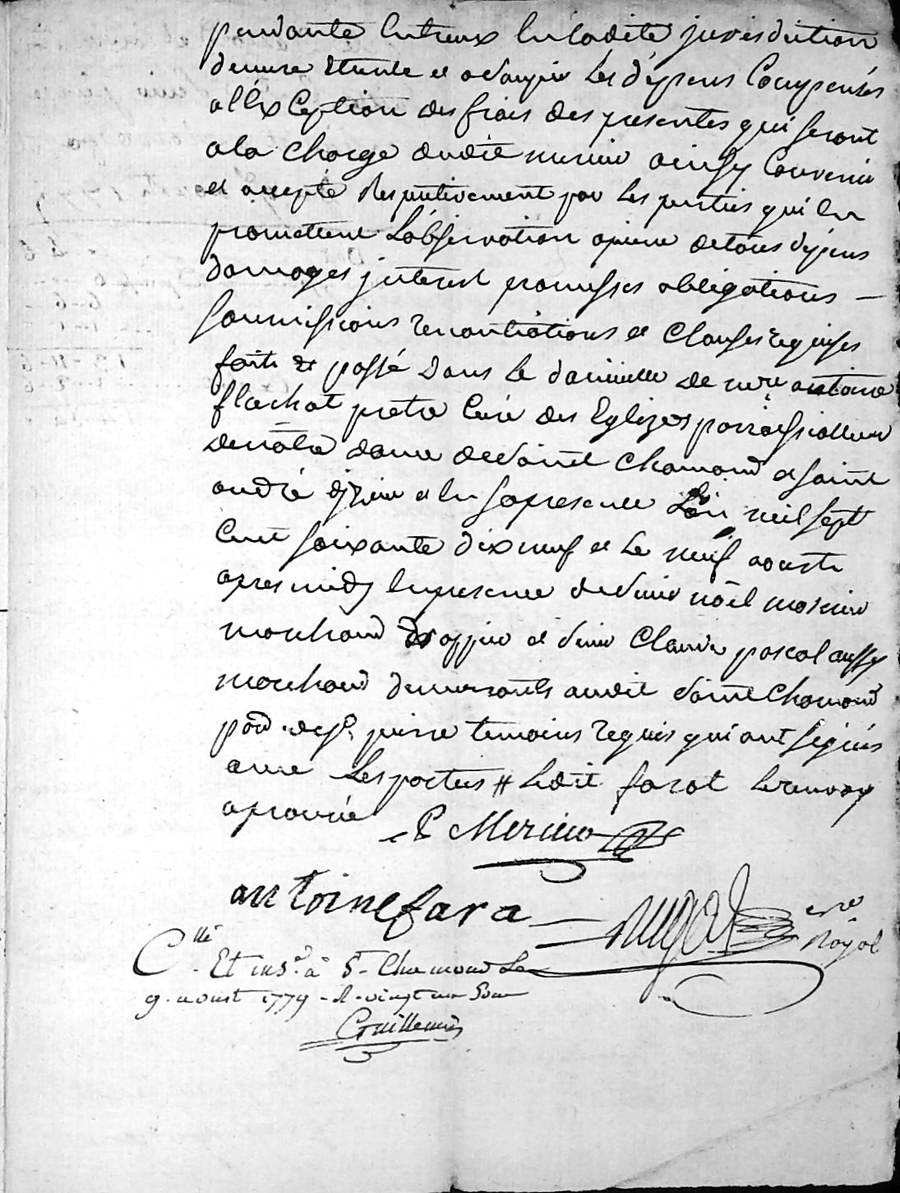 pendante entreux en ladite jurisdiction
demeure Eteinte et les dépens Compensés
a l'exception des frais des presentes qui seront
a la Charge dudit ainsy Convenu
et accepté Respectivement par les parties qui en
promettent L'observation a peine detous dépens
domages jnterest promisses obligations —
Soumissions renontiations et Clauses requises
fait et passé dans le de mre antoine
flachat pretre Curé des Eglizes parroissialles
denotre dame desaint Chamond et Saint
andré et en sa presence L'an mil sept
Cent soixante dix neuf et Le neuf aoust
apres midy en presence de sieur nöel
marchand et sieur Claude pascal aussy
marchand demeurants audit Saint Chamond
temoins requis qui ont signés
avec Les parties # Ledit farat Le renvoy
aprouvé
Merieu
antoine fara
nre
Royal
Cllé Et insé a St Chamond Le
9. aoust 1779
Guillemin